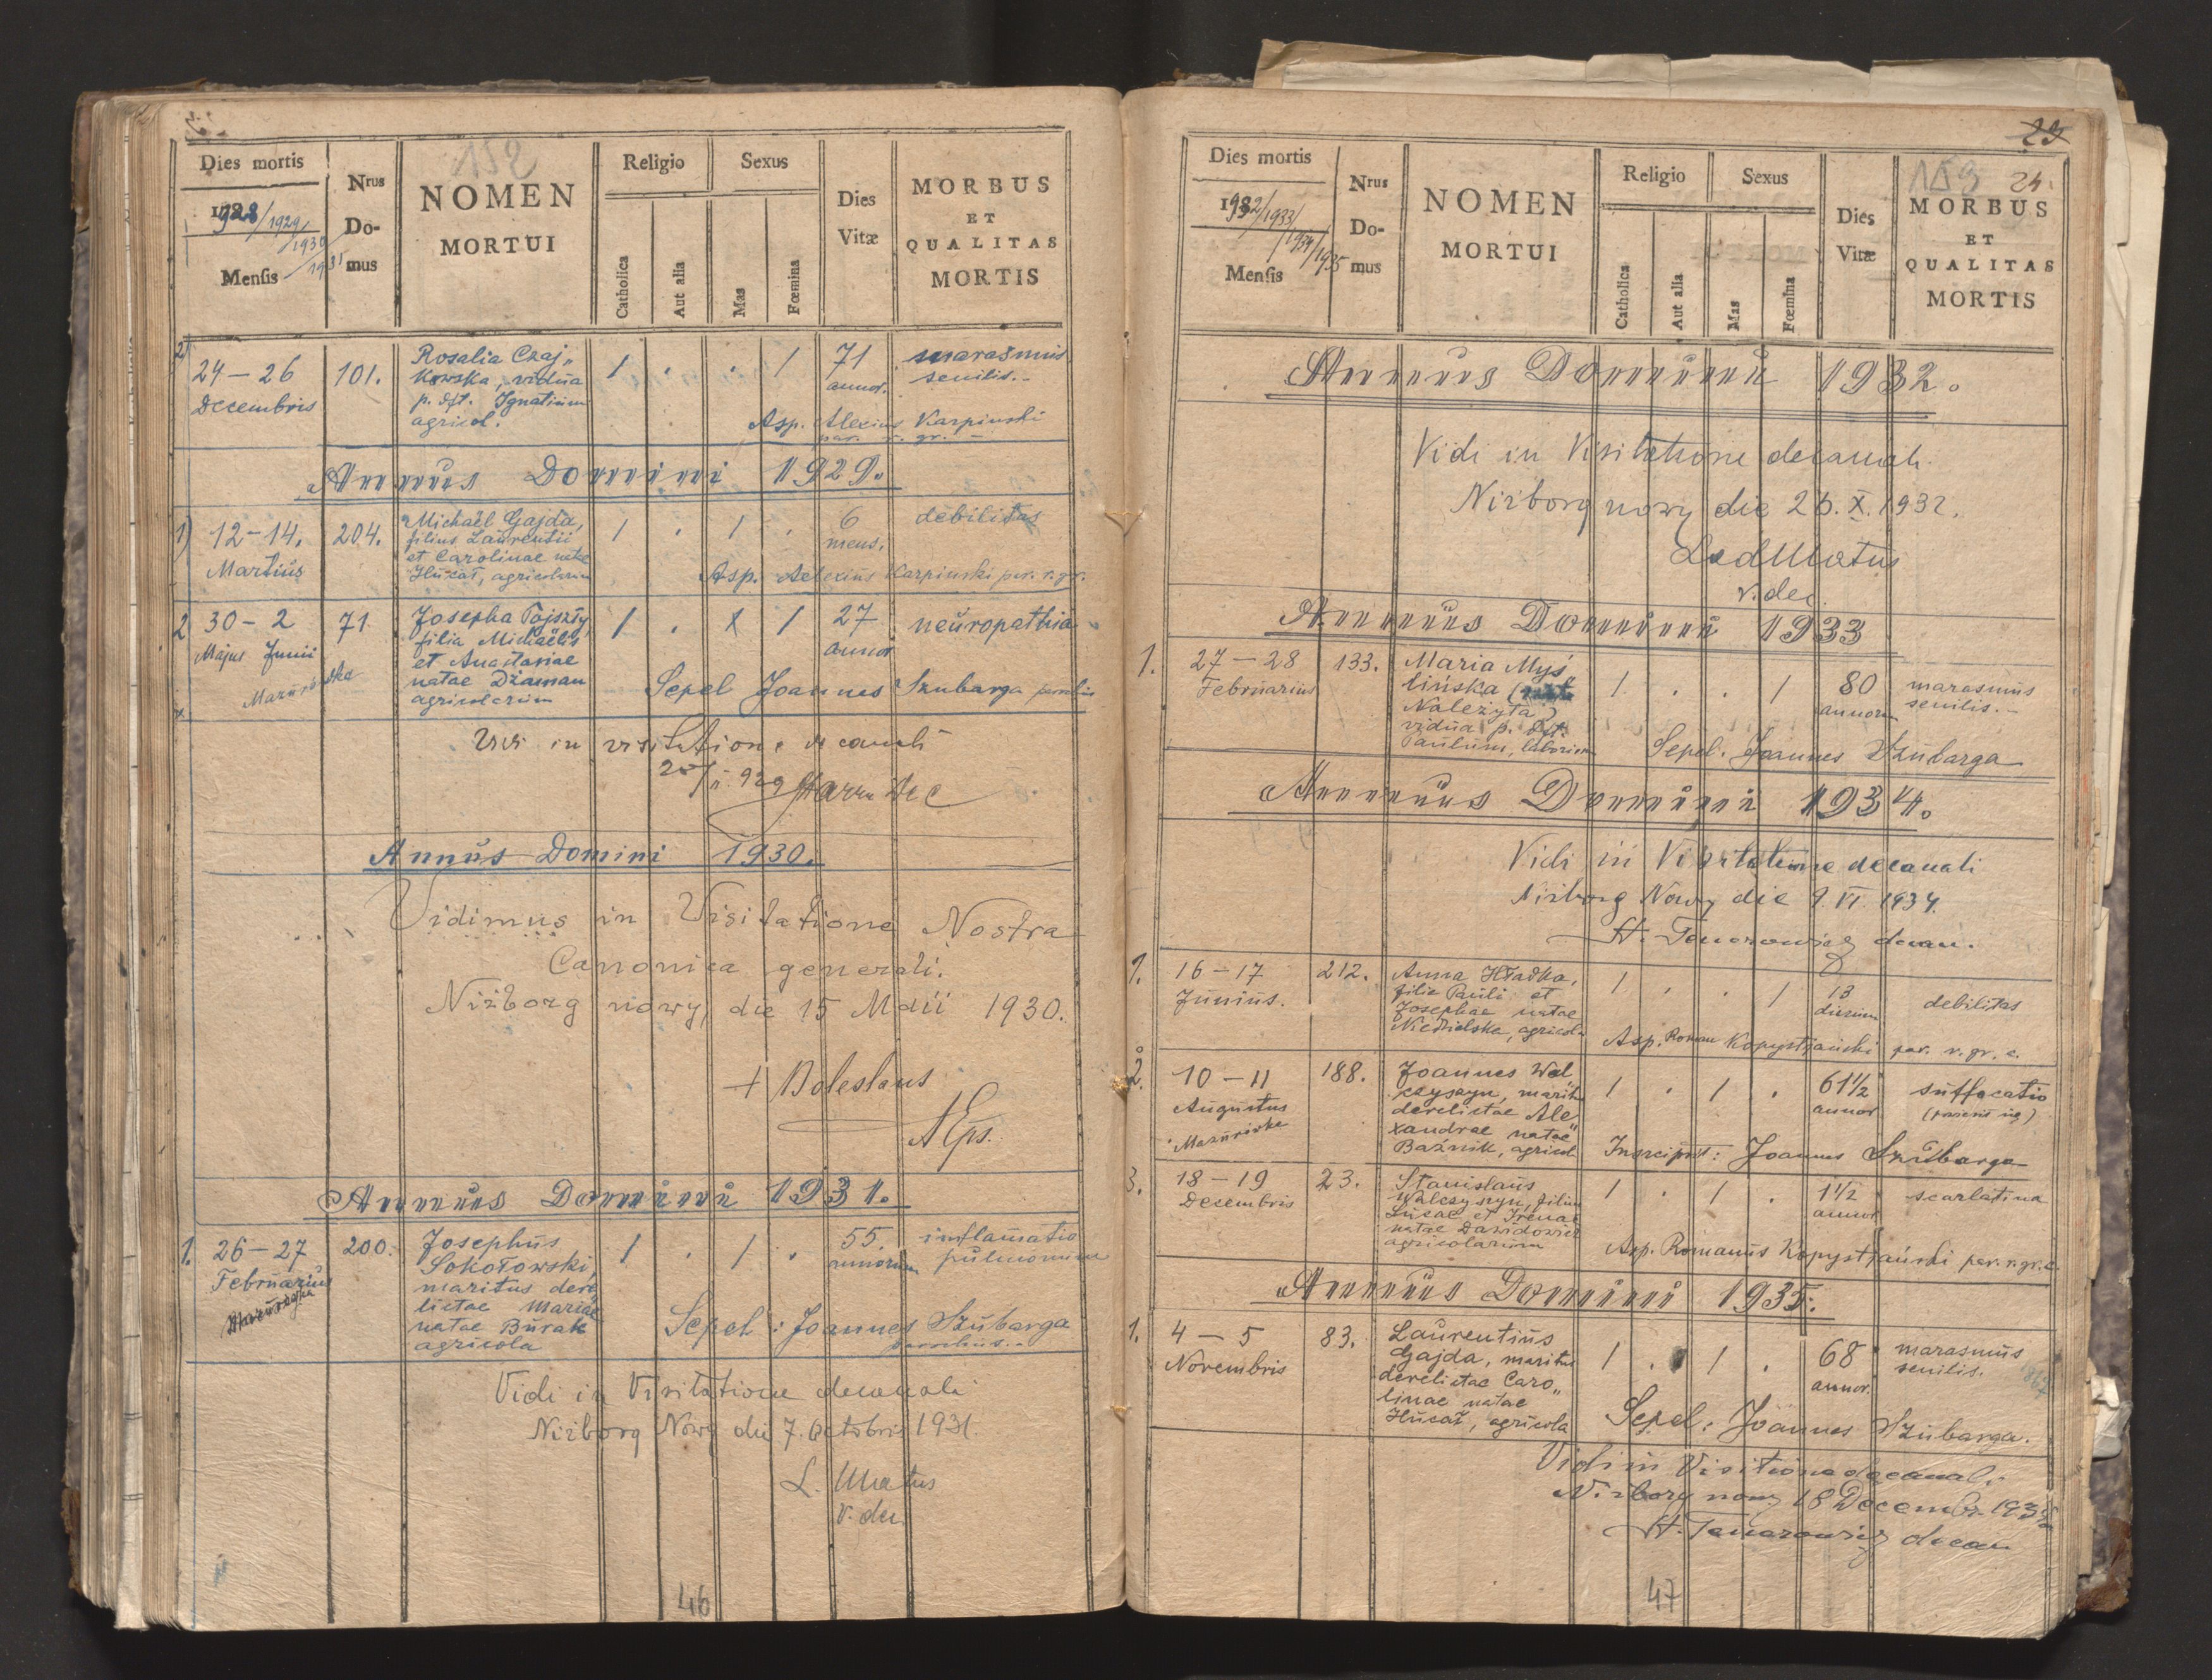 152
Dies mortis
1928/1929/
/1930/
1931
Menſis
Nrus
Do-
mus
NOMEN
MORTUI
Religio
Catholica
Aut alia
Sexus
Mas
Fœmina
Dies
Vitæ
MORBUS
ET
QUALITAS
MORTIS
2
24 – 26
Decembris
101.
Rosalia Czaj„
kowska, vidua
p. dft. Ignatium
agricol.
1 . . 1
71
annor.
marasmus
senilis.-
Asp. Alexius Karpinski
par. r. gr.
Annus Domini 1929.
1)
12–14.
Martius
204.
Michaël Gajda,
filius Laurentii
et Carolinae natae
Hucał, agricolarum
1 . 1 .
6
mens.
debilitas
Asp. Aelexius Karpinski par. r. gr.
2
30 – 2
Majus Junii
71
Josepha
filia Michaëlis
et Anastasiae
natae Dżaman
agricolarum
1 . X 1
27
annor
neuropathia
Sepel Joannes Szubarga
Vidi in visitatione decanali
Annus Domini 1930.
Vidimus in Visitatione Nostra
Canonica generali.
Niżborg nowy, die 15 Maii 1930.
+ Boleslaus
AEps.
Annus Domini 1931.
1.
26–27
Februarius
200.
Josephus
Sokołowski,
maritus dere„
lictae Mariae
natae Burak
agricola
1 . 1 .
55.
annorum
inflamatio
pulmonum
Sepel: Joannes Szubarga
parochus.-
Vidi in Visitatione decanali
Niżborg Nowy die 7. Octobris 1931.
L. Matus
v. dec.
46
29
159 24.
Dies mortis
1932/1933/
/1934/1935
Menſis
Nrus
Do-
mus
NOMEN
MORTUI
Religio
Catholica
Aut alia
Sexus
Mas
Fœmina
Dies
Vitæ
MORBUS
ET
QUALITAS
MORTIS
Annus Domini 1932.
Vidi in Visitatione decanali
Niżborg nowy die 26. X. 1932.
Matus
v. dec.
Annus Domini 1933
1.
27 – 28
Februarius
133.
Maria Myś„
lińska (nata
Należyta)
vidua p. dft.
Paulum,
1 . . 1
80
annorum
marasmus
senilis.-
Sepel: Joannes Szubarga
Annus Domini 1934.
Vidi in Visitatione decanali
Niżborg Nowy die 9. VI. 1934.
decan.
1.
16–17
Junius.
212.
Anna Hładka,
filia Pauli et
Josephae natae
Niedzielska, agricola
1 . . 1
13
dierum
debilitas
Asp. Roman Kopystjański par. r. gr. c.
2.
10 – 11
Augustus
188.
Joannes Wal„
czyszyn, maritus
derelictae Ale„
xandrae natae
Baźnik, agricol
1 . 1 .
61 1/2
annor
suffocatio
Inscripsit: Joannes Szubarga
3.
18 – 19
Decembris
23.
Stanislaus
Walczyszyn, filius
Lucae et Irenae
natae Dawidowicz
agricolarum
1 . 1 .
1 1/2
annor
scarlatina
Asp. Romanus Kopystjański par. r. gr. c.
Annus Domini 1935.
1.
4 – 5
Novembris
83.
Laurentius
Gajda, maritus
derelictae Caro„
linae natae
Hucał, agricola
1 . 1 .
68
annor.
marasmus
senilis.
Sepel: Joannes Szubarga.
Vidi in Visitatione decanali
Niżborg nowy 18 Decembr. 1935
decan
47